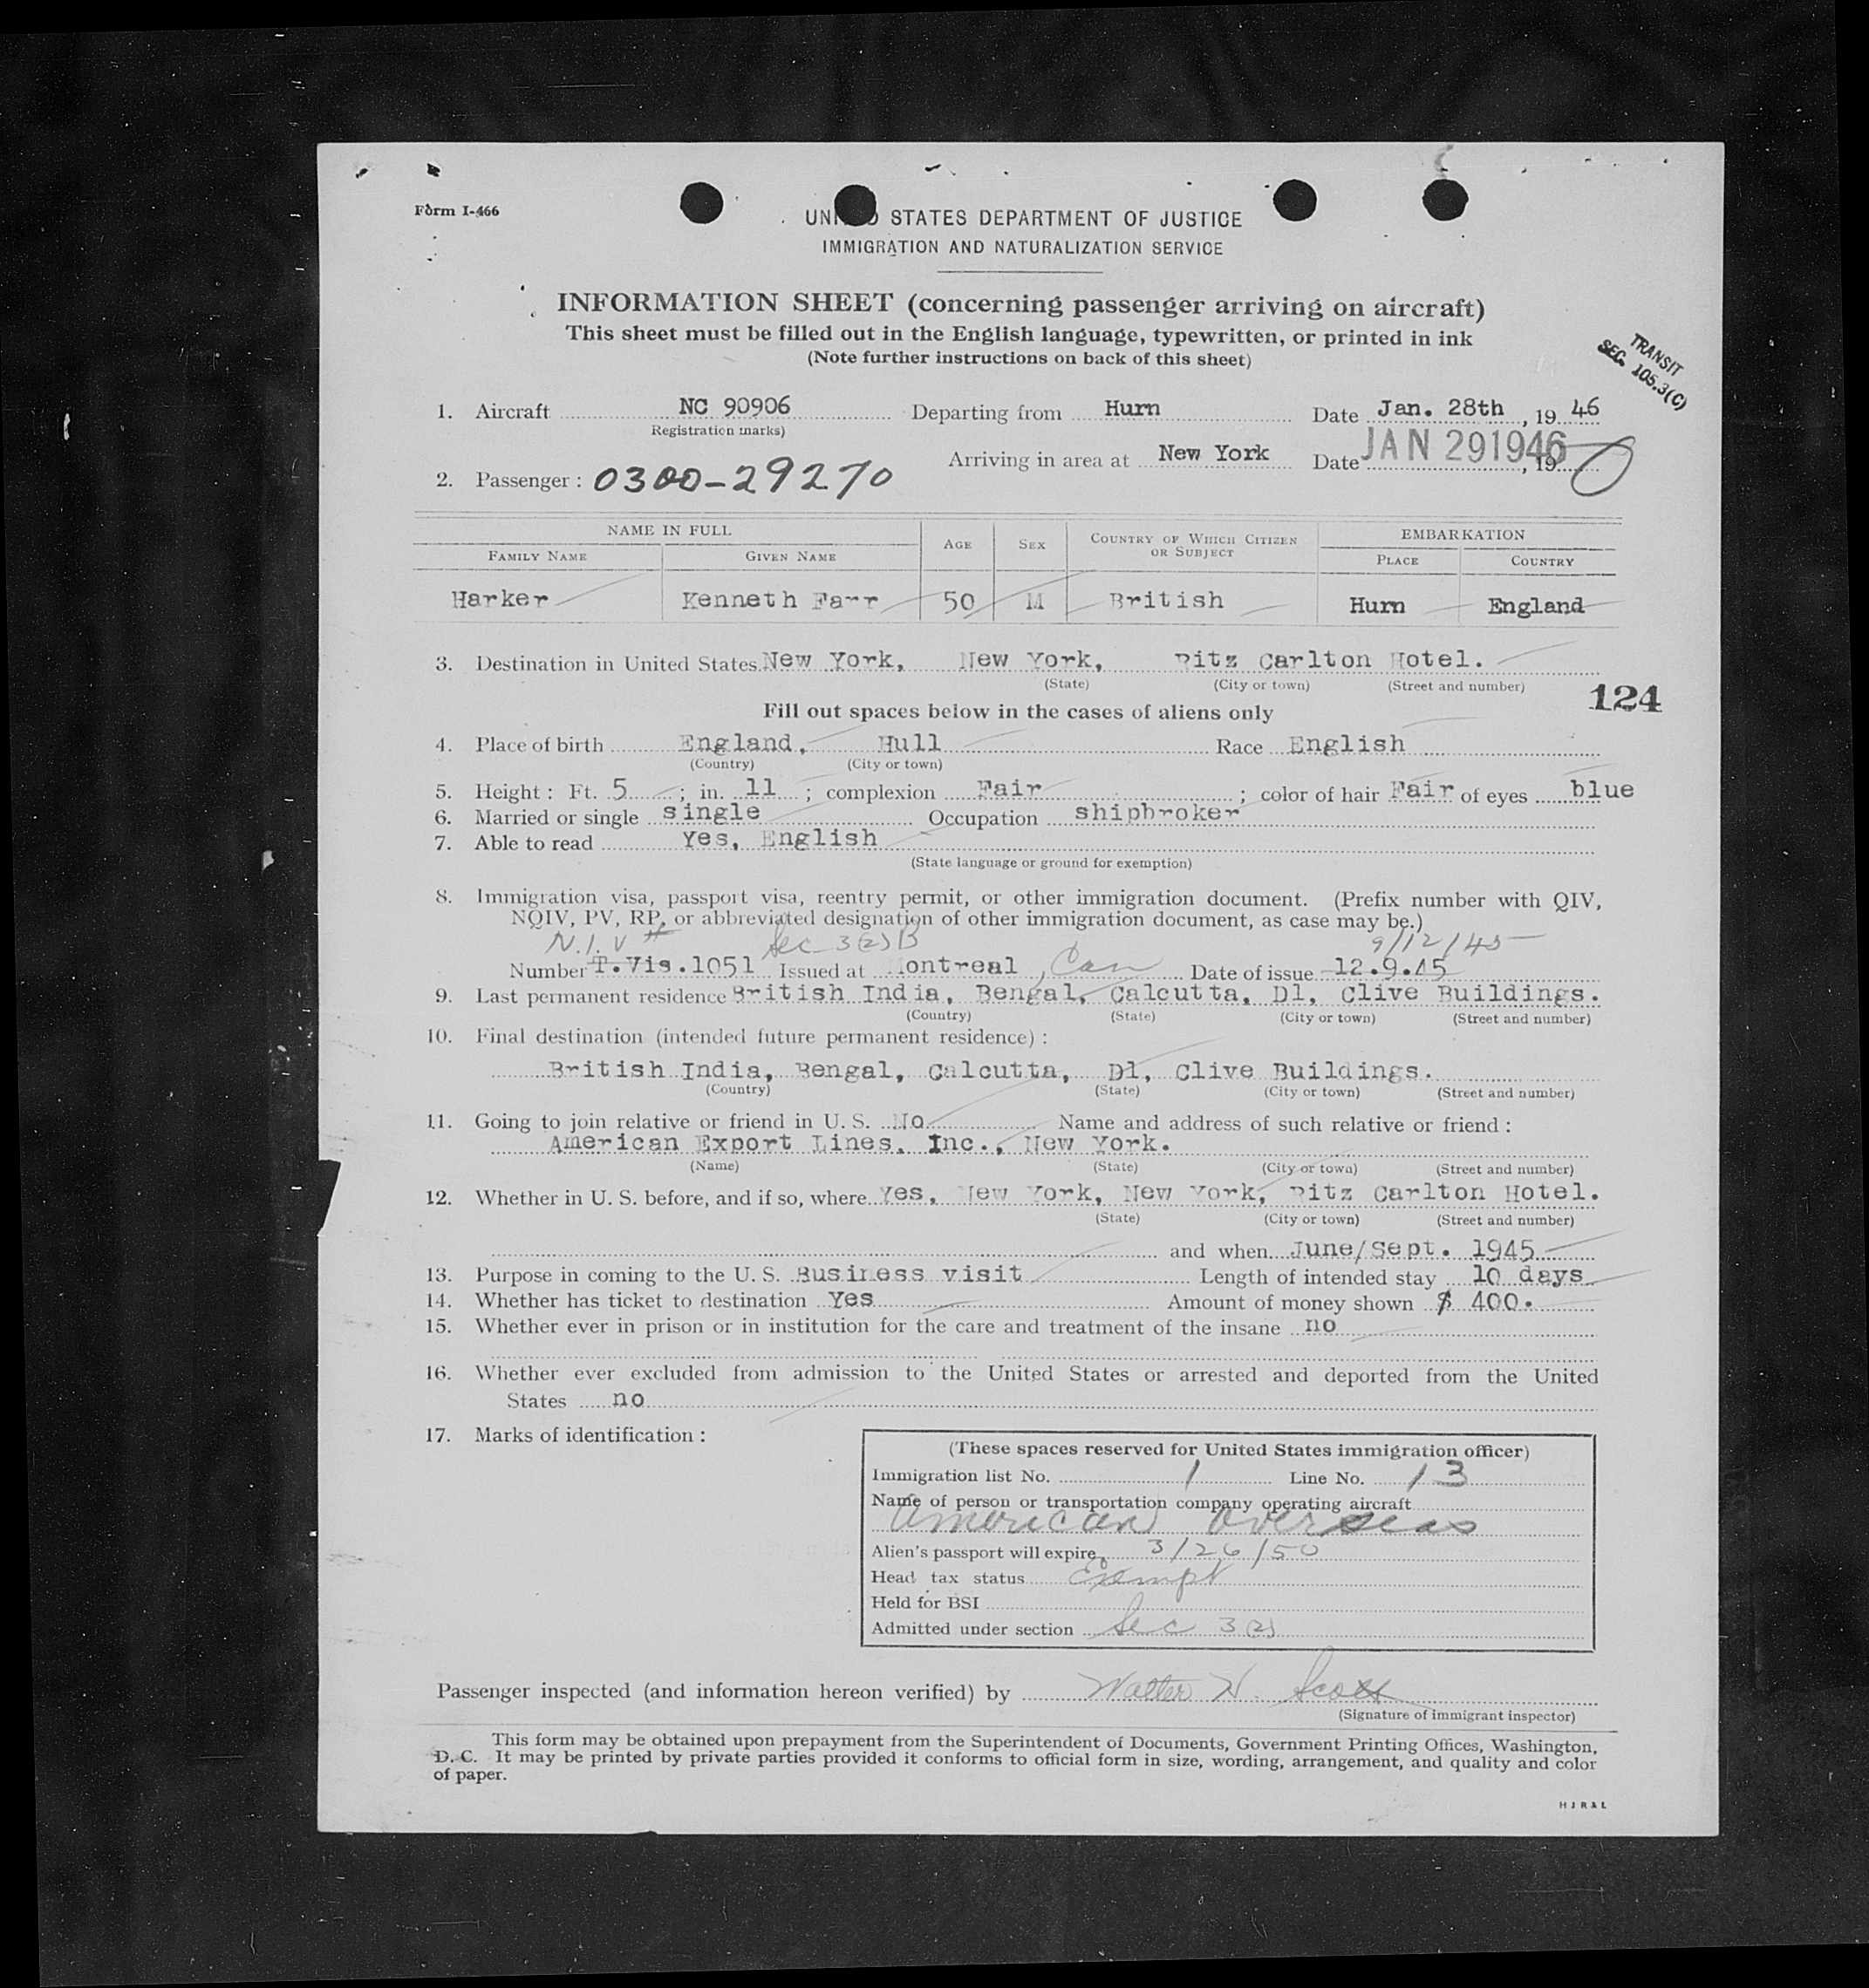 Form I-466
UNITED STATES DEPARTMENT OF JUSTICE
IMMIGRATION AND NATURALIZATION SERVICE
INFORMATION SHEET (concerning passenger arriving on aircraft)
This sheet must be filled out in the English language, typewritten, or printed in ink
(Note further instructions on back of this sheet)
TRANSIT
SEC. 105.3(C)
1. Aircraft NC 90906 Departing from Hurn Date Jan. 28th, 19 46
(Registration marks)
Arriving in area at New York Date JAN 29 1946, 19
2. Passenger: 0300-29270
NAME IN FULL AGE SEX COUNTRY OF WHICH CITIZEN OR SUBJECT EMBARKATION
FAMILY NAME GIVEN NAME PLACE COUNTRY
Harker Kenneth Farr 50 M British Hurn England
3. Destination in United States New York, New York, Ritz Carlton Hotel.
(State) (City or town) (Street and number)
124
Fill out spaces below in the cases of aliens only
4. Place of birth England, Hull Race English
(Country) (City or town)
5. Height: Ft. 5; in. 11; complexion Fair; color of hair Fair of eyes blue
6. Married or single single Occupation shipbroker
7. Able to read Yes, English
(State language or ground for exemption)
8. Immigration visa, passport visa, reentry permit, or other immigration document. (Prefix number with QIV,
NQIV, PV, RP, or abbreviated designation of other immigration document, as case may be.)
N.I.V # Sec 3(2)B 9/12/45
Number T.Vis.1051 Issued at Montreal, Can Date of issue 12.9.45
9. Last permanent residence British India, Bengal, Calcutta, D1, Clive Buildings.
(Country) (State) (City or town) (Street and number)
10. Final destination (intended future permanent residence):
British India, Bengal, Calcutta, D1, Clive Buildings.
(Country) (State) (City or town) (Street and number)
11. Going to join relative or friend in U. S. No Name and address of such relative or friend:
American Export Lines, Inc., New York.
(Name) (State) (City or town) (Street and number)
12. Whether in U. S. before, and if so, where Yes, New York, New York, Ritz Carlton Hotel.
(State) (City or town) (Street and number)
and when June/Sept. 1945
13. Purpose in coming to the U. S. Business visit Length of intended stay 10 days
14. Whether has ticket to destination Yes Amount of money shown $ 400.
15. Whether ever in prison or in institution for the care and treatment of the insane no
16. Whether ever excluded from admission to the United States or arrested and deported from the United
States no
17. Marks of identification:
(These spaces reserved for United States immigration officer)
Immigration list No. 1 Line No. 13
Name of person or transportation company operating aircraft
American Overseas
Alien's passport will expire 3/26/50
Head tax status Exempt
Held for BSI
Admitted under section Sec 3(2)
Passenger inspected (and information hereon verified) by Walter N. Scott
(Signature of immigrant inspector)
This form may be obtained upon prepayment from the Superintendent of Documents, Government Printing Offices, Washington,
D. C. It may be printed by private parties provided it conforms to official form in size, wording, arrangement, and quality and color
of paper.